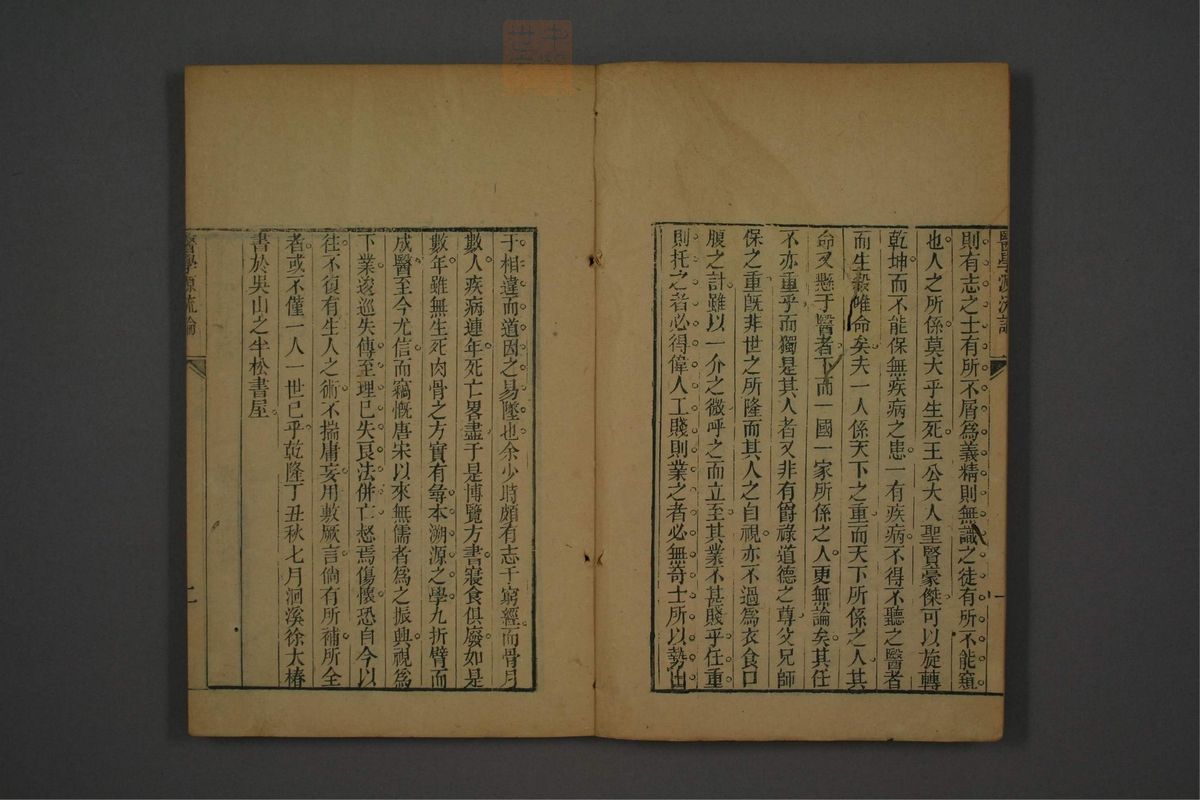 醫學源流論
一
則有志之士有所不屑爲義精則無識之徒有所不能窺
也人之所係莫大乎生死王公大人聖賢豪傑可以旋轉
乾坤而不能保無疾病之患一有疾病不得不聽之醫者
而生殺唯命矣夫一人係天下之重而天下所係之人其
命又懸于醫者下而一國一家所係之人更無論矣其任
不亦重乎而獨是其人者又非有爵祿道德之尊父兄師
保之重旣非世之所隆而其人之自視亦不過爲衣食口
腹之計雖以一介之微呼之而立至其業不甚賤乎任重
則托之者必得偉人工賤則業之者必無奇士所以勢出
于相違而道因之易墜也余少時頗有志于窮經而骨月
數人疾病連年死亡畧盡于是博覽方書寢食俱廢如是
數年雖無生死肉骨之方實有尋本溯源之學九折臂而
成醫至今尤信而竊慨唐宋以來無儒者爲之振興視爲
下業逡巡失傳至理已失良法併亡惄焉傷懷恐自今以
往不復有生人之術不揣庸妄用敷厥言倘有所補所全
者或不僅一人一世已乎乾隆丁丑秋七月洄溪徐大椿
書於吳山之半松書屋
醫學源流論
二